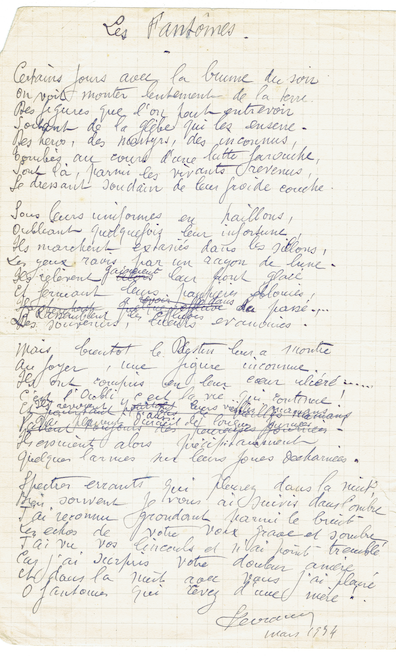 Les Fantômes.
Certains jours avec la brume du soir
On voit monter lentement de la terre
Des figures que l'on peut entrevoir
Sortant de la glèbe qui les enserre.
Des héros, des martyrs, des inconnus,
Tombés au cours d'une lutte farouche,
Sont là, parmi les vivants revenus,
Se dressant soudain de leur froide couche.
Sous leurs uniformes en haillons,
Oubliant quelquefois leur infortune,
Ils marchent extasiés dans les sillons,
Les yeux ravis par un rayon de lune.
Ils relèvent gaiement leur front glacé
Et fermant leurs paupières
du passé...
Les souvenirs
Mais bientôt le leur a montré
Au foyer, une figure inconnue
Ils ont compris en leur cœur ulcéré.....
C'est l'Oubli, c'est la vie qui continue!
Et
Ils essuient alors précipitamment
Quelques larmes sur leurs joues décharnées.
Spectres errants qui pleurez dans la nuit,
Bien souvent je vous ai suivis dans l'ombre
J'ai reconnu grondant parmi le bruit
Les échos de votre voix grave et sombre,
J'ai vu vos linceuls et n'ai point tremblé
Car j'ai surpris votre douleur amère
Et dans la nuit avec vous j'ai pleuré
O fantômes qui rêvez d'une mère...
mars 1934